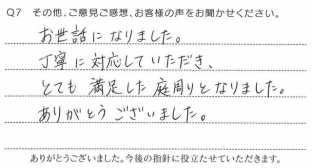 Q7 その他、ご意見ご感想、お客様の声をお聞かせください。
お世話になりました。
丁寧に対応していただき、
とても満足した庭周りとなりました。
ありがとうございました。
ありがとうございました。今後の指針に役立たせていただきます。